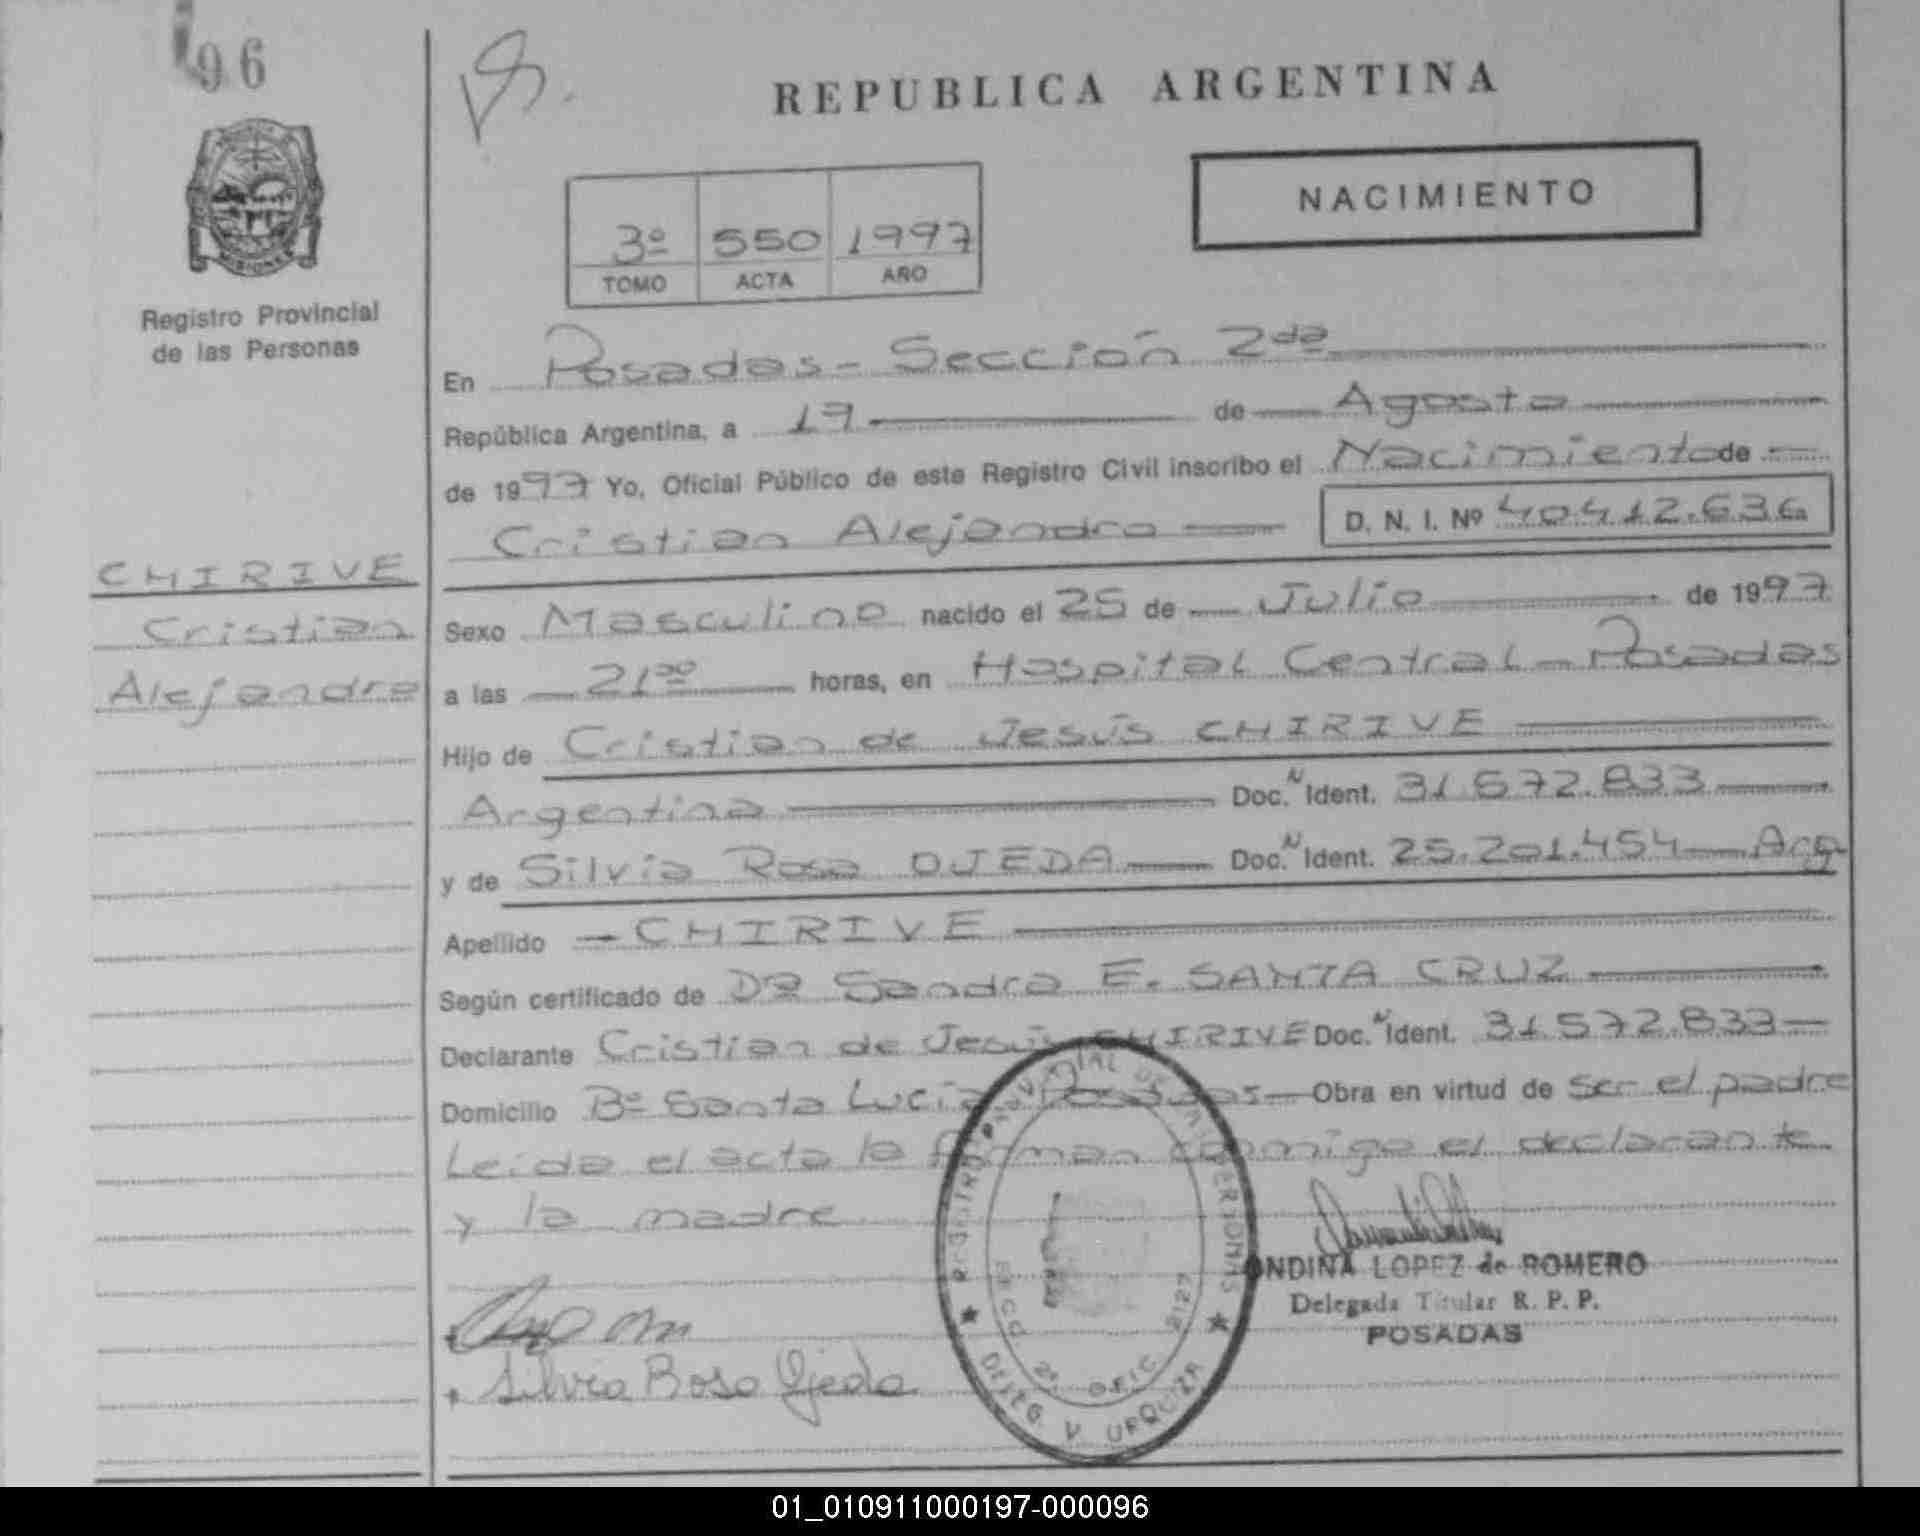 96
REPUBLICA ARGENTINA
NACIMIENTO
3º 550 1997
TOMO ACTA AÑO
MISIONES
Registro Provincial
de las Personas
En Posadas - Sección 2da
República Argentina, a 19 de Agosto
de 1997 Yo, Oficial Público de este Registro Civil inscribo el Nacimiento de
Cristian Alejandro D. N. I. Nº 40.412.636
CHIRIVE
Cristian
Alejandro
Sexo Masculino nacido el 25 de Julio de 1997
a las 21 horas, en Hospital Central - Posadas
Hijo de Cristian de Jesús CHIRIVE
Argentina Doc. N Ident. 31.572.833
y de Silvia Rosa OJEDA Doc. N Ident. 25.201.454 Arg
Apellido - CHIRIVE
Según certificado de Dra Sandra E. SANTA CRUZ
Declarante Cristian de Jesús CHIRIVE Doc. N Ident. 31.572.833
Domicilio Bº Santa Lucia Posadas Obra en virtud de ser el padre
Leida el acta la firman conmigo el declarante
y la madre
ONDINA LOPEZ de ROMERO
Delegada Titular R. P. P.
POSADAS
Silvia Rosa Ojeda
REGISTRO PROVINCIAL DE LAS PERSONAS
SECC. 2ª. OFIC. 2127
DELEG. V. URQUIZA
01_010911000197-000096